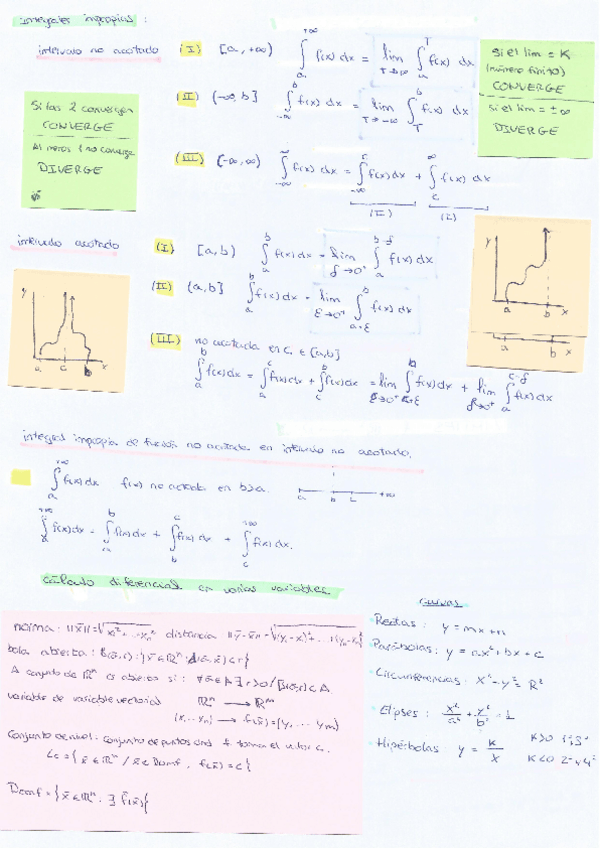 integrales impropias:
intervalo no acotado (I) [a, +∞) ∫_a^{+∞} f(x) dx = lim_{T→∞} ∫_a^T f(x) dx
si el lim = K
(número finito)
CONVERGE
si el lim = ±∞
DIVERGE
(II) (-∞, b] ∫_{-∞}^b f(x) dx = lim_{T→-∞} ∫_T^b f(x) dx
Si las 2 convergen
CONVERGE
Al menos 1 no converge
DIVERGE
(III) (-∞, ∞) ∫_{-∞}^{∞} f(x) dx = ∫_{-∞}^c f(x) dx + ∫_c^∞ f(x) dx
(II) (I)
intervalo acotado (I) [a, b) ∫_a^b f(x) dx = lim_{δ→0⁺} ∫_a^{b-δ} f(x) dx
(II) (a, b] ∫_a^b f(x) dx = lim_{ε→0⁺} ∫_{a+ε}^b f(x) dx
(III) no acotada en c ∈ [a, b]
∫_a^b f(x) dx = ∫_a^c f(x) dx + ∫_c^b f(x) dx = lim_{ε→0⁺} ∫_{c+ε}^b f(x) dx + lim_{δ→0⁺} ∫_a^{c-δ} f(x) dx
y
a c b x
y
a b x
a b x
integral impropia de función no acotada en intervalo no acotado.
∫_a^{+∞} f(x) dx f(x) no acotada en b>a.
a b c +∞
∫_a^{+∞} f(x) dx = ∫_a^b f(x) dx + ∫_b^c f(x) dx + ∫_c^{+∞} f(x) dx.
cálculo diferencial en varias variables
norma: ||x̄|| = √(x₁² + ... x_n²) distancia ||ȳ - x̄|| = √((y₁-x₁)² + ... + (y_n-x_n)²)
bola abierta:
A conjunto de ℝⁿ es abierto si:
variable de variable vectorial ℝⁿ → ℝᵐ
(x₁...x_n) → f(x̄) = (y₁ ... y_m)
Conjunto de nivel: conjunto de puntos f toma el valor c.
Lc = { x̄ ∈ ℝⁿ / x̄ ∈ Domf, f(x̄) = c }
Domf = { x̄ ∈ ℝⁿ : ∃ f(x̄) }
curvas
Rectas: y = mx+n
Parábolas: y = ax² + bx + c
Circunferencias: x² - y² = R²
Elipses: x²/a² + y²/b² = 1
Hipérbolas: y = K/x K>0 1º,3º
K<0 2º,4º